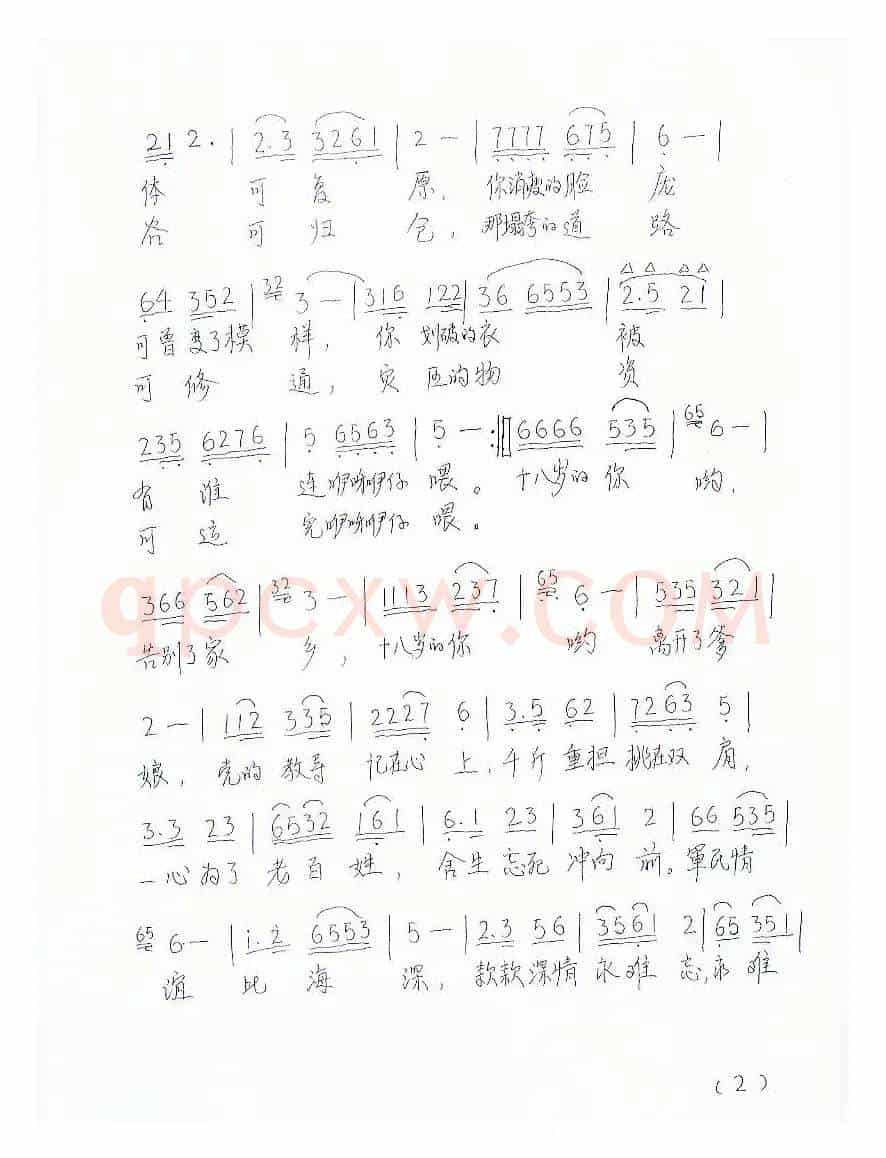 21 2. | 2.3 3261 | 2 — | 7777 675 | 6 — |
体 可 复 原, 你消瘦的脸 庞
谷 可 归 仓, 那塌弯的道 路
64 352 | 32 3 — | 316 122 | 36 6553 | 2.5 21 |
可曾变了模 样, 你 划破的衣 被
可 修 通, 灾 区的物 资
235 6276 | 5 6563 | 5 — :|| 6666 535 | 65 6 — |
有 谁 连咿呀咿仔 喂。 十八岁的 你 哟,
可 运 完咿呀咿仔 喂。
366 562 | 32 3 — | 1113 237 | 65 6 — | 535 321 |
告别了家 乡, 十八岁的你 哟 离开了爹
2 — | 112 335 | 2227 6 | 3.5 62 | 7263 5 |
娘, 党的 教导 记在心 上, 千斤 重担 挑在双 肩,
3.3 23 | 6532 161 | 6.1 23 | 361 2 | 66 535 |
一心为了 老百 姓, 舍生 忘死 冲向 前。军民情
65 6 — | i.2 6553 | 5 — | 2.3 56 | 3561 2 | 65 351 |
谊 比 海 深, 款款深情 永难 忘,永 难
qpcxw.com
(2)